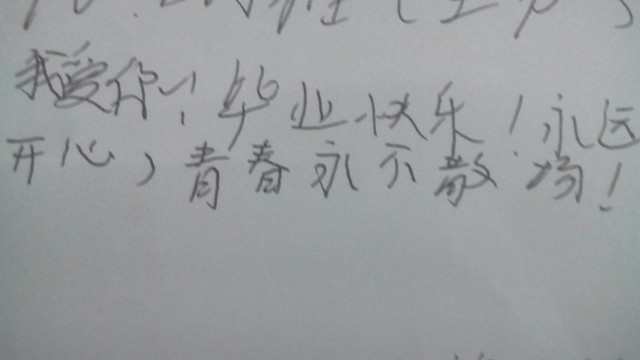 我爱你！毕业快乐！永远
开心，青春永不散场！